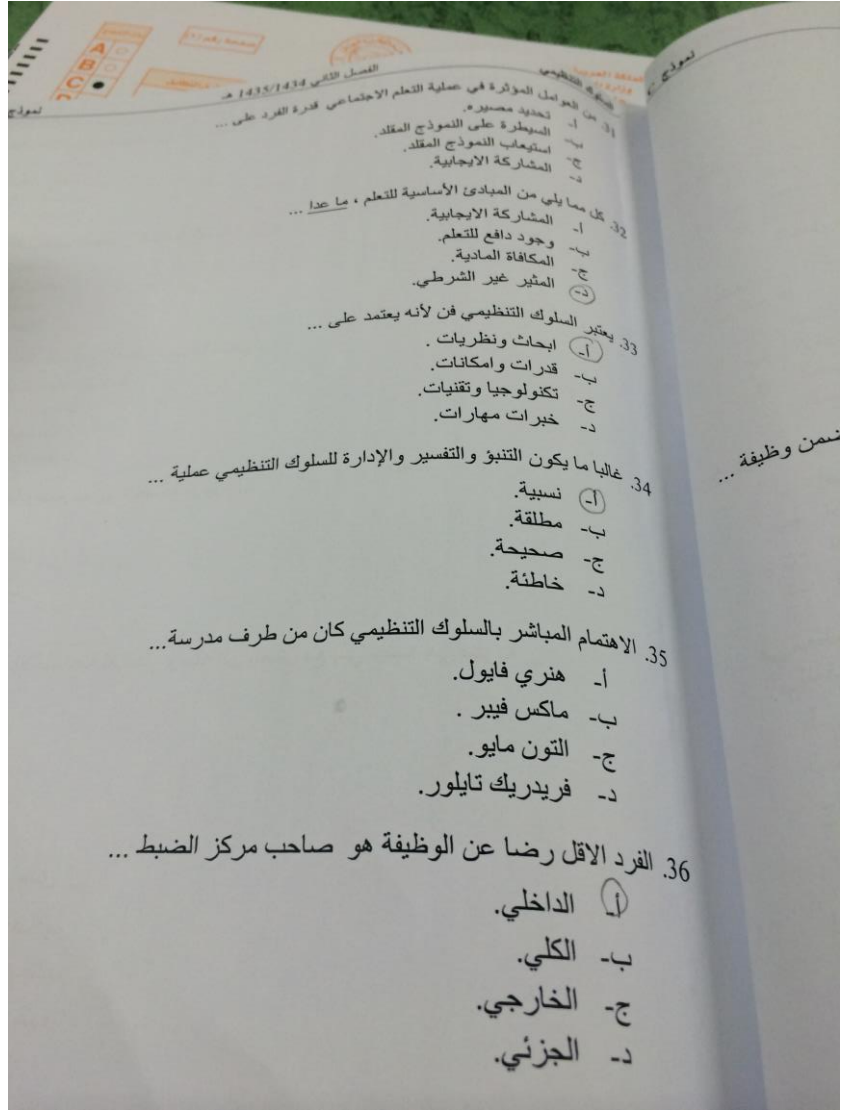 صفحة رقم (١)
A
B
C
D
المملكة العربية
وزارة
نموذج C
السلوك التنظيمي
الفصل الثاني 1435/1434 هـ
نموذج
31. من العوامل المؤثرة في عملية التعلم الاجتماعي قدرة الفرد على ...
أ- تحديد مصيره.
ب- السيطرة على النموذج المقلد.
ج- استيعاب النموذج المقلد.
د- المشاركة الايجابية.
32. كل مما يلي من المبادئ الأساسية للتعلم ، ما عدا ...
أ- المشاركة الايجابية.
ب- وجود دافع للتعلم.
ج- المكافاة المادية.
د- المثير غير الشرطي.
33. يعتبر السلوك التنظيمي فن لأنه يعتمد على ...
أ- ابحاث ونظريات .
ب- قدرات وامكانات.
ج- تكنولوجيا وتقنيات.
د- خبرات مهارات.
34. غالبا ما يكون التنبؤ والتفسير والإدارة للسلوك التنظيمي عملية ...
أ- نسبية.
ب- مطلقة.
ج- صحيحة.
د- خاطئة.
35. الاهتمام المباشر بالسلوك التنظيمي كان من طرف مدرسة...
أ- هنري فايول.
ب- ماكس فيبر .
ج- التون مايو.
د- فريدريك تايلور.
36. الفرد الاقل رضا عن الوظيفة هو صاحب مركز الضبط ...
أ- الداخلي.
ب- الكلي.
ج- الخارجي.
د- الجزئي.
ضمن وظيفة ...